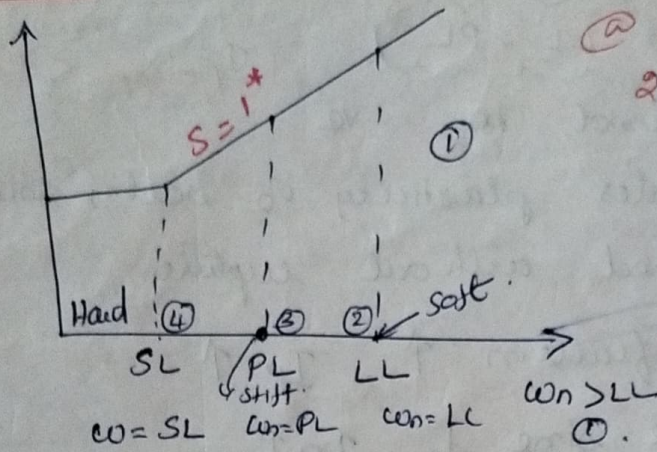 a
2
S = 1*
①
Hard ④ ③ ② soft.
SL PL LL
stiff.
ω = SL ωn = PL ωn = LL ωn > LL
①.